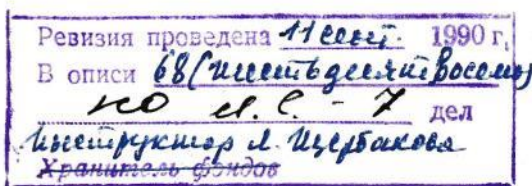 Ревизия проведена 11 сент. 1990 г,
В описи 68 (шестьдесят восемь)
по л.с. - 7 дел
Инструктор Л. Щербакова
Хранитель фондов